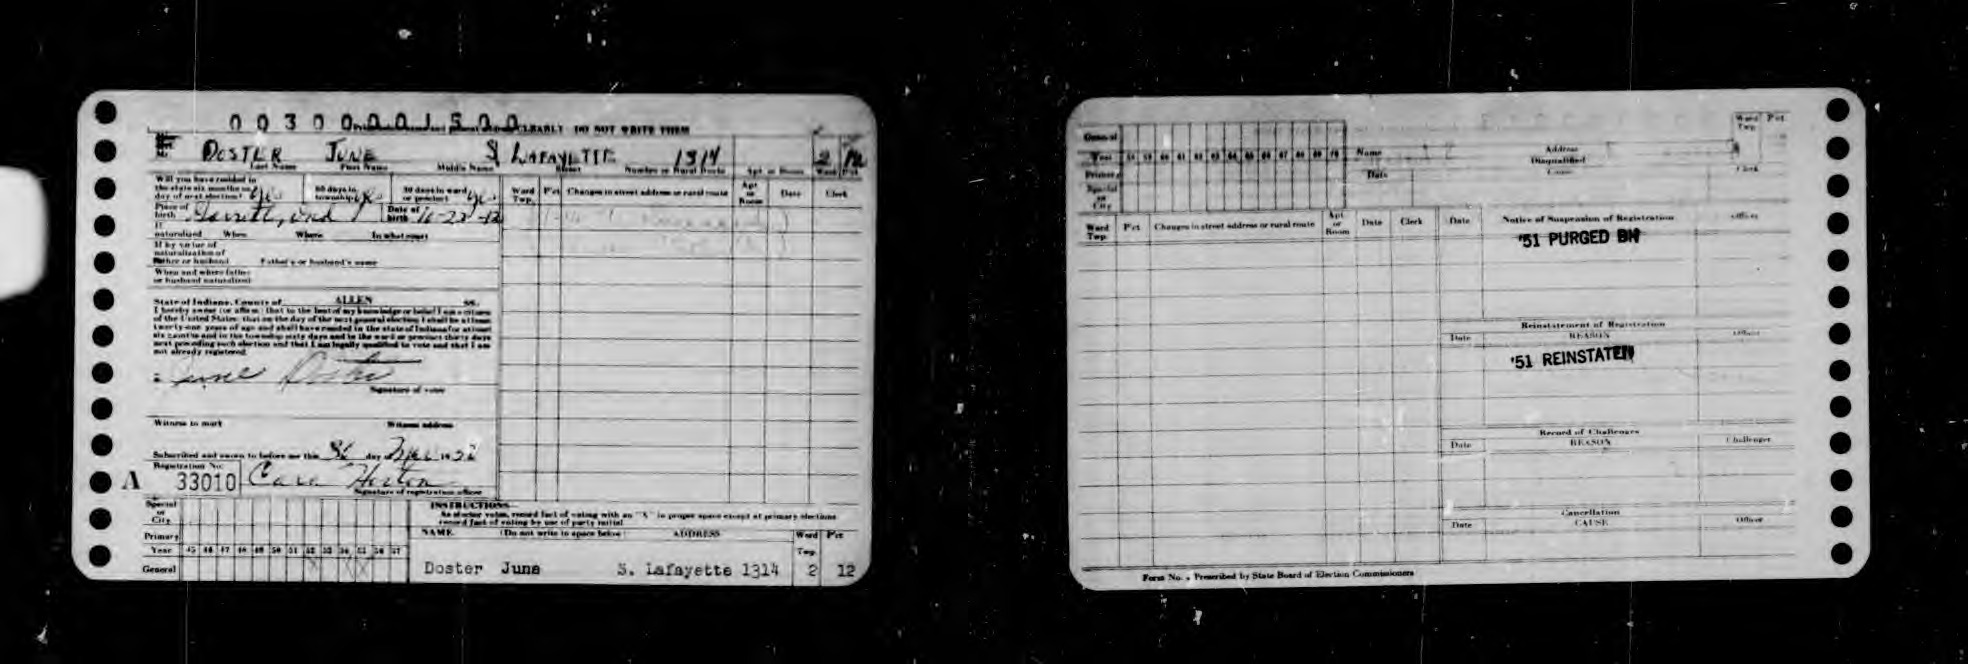 0 0 3 0 0 0 0 1 5 0 0 CLEARLY DO NOT WRITE THEM
Mr. DOSTER JUNE S LAFAYETTE 1314 2 12
Last Name First Name Middle Name Street Number or Rural Route Apt or Room Ward Pct
Will you have resided in
the state six months on 60 days in 30 days in ward
day of next election? township or precinct
Place of birth Garrett, Ind Date of birth
Ward Twp. P'ct Changes in street address or rural route Apt or Room Date Clerk
If
naturalized When Where In what court
If by virtue of
naturalization of
father or husband Father's or husband's name
When and where father
or husband naturalized
State of Indiana, County of ALLEN ss.
I hereby swear (or affirm) that to the best of my knowledge or belief I am a citizen
of the United States; that on the day of the next general election I shall be at least
twenty-one years of age and shall have resided in the state of Indiana for at least
six months and in the township sixty days and in the ward or precinct thirty days
next preceding such election and that I am legally qualified to vote and that I am
not already registered
June Doster
Signature of voter
Witness to mark Witness address
Subscribed and sworn to before me this day 19 52
Registration No.
A 33010 Cara Horton
Signature of registration officer
Special or City
Primary
Year 45 46 47 48 49 50 51 52 53 54 55 56 57
General X X X
INSTRUCTIONS
As elector votes, record fact of voting with an "X" in proper space except at primary elections
record fact of voting by use of party initial
NAME (Do not write in space below) ADDRESS Ward Twp. P'ct
Doster June S. Lafayette 1314 2 12
General
Year 58 59 60 61 62 63 64 65 66 67 68 69 70
Primary
Special or City
Name Address Ward Twp. P'ct
Disqualified
Date Cause Clerk
Ward Twp. P'ct Changes in street address or rural route Apt or Room Date Clerk
Date Notice of Suspension of Registration Officer
'51 PURGED BH
Reinstatement of Registration
Date REASON Officer
'51 REINSTATED
Record of Challenges
Date REASON Challenger
Cancellation
Date CAUSE Officer
Form No. , Prescribed by State Board of Election Commissioners